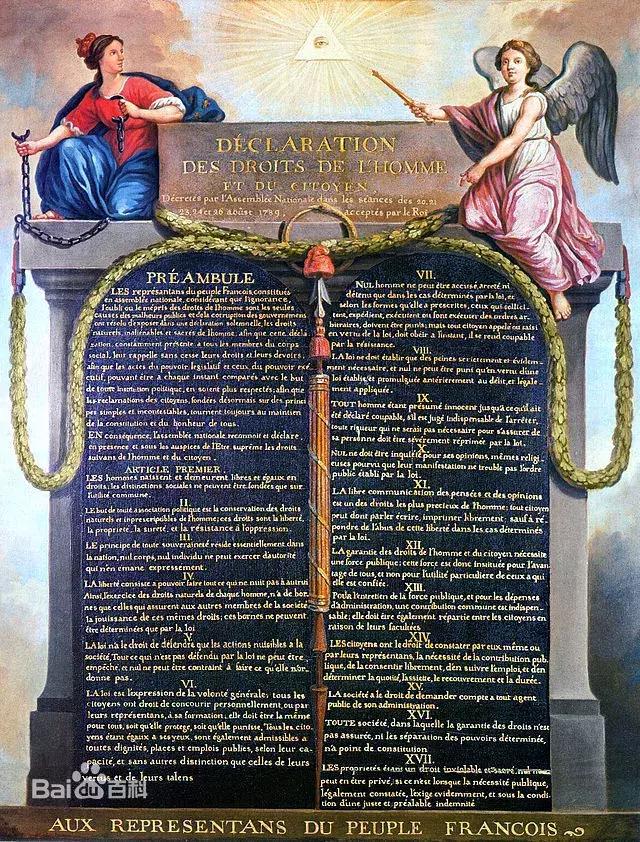 DÉCLARATION
DES DROITS DE L'HOMME
ET DU CITOYEN,
Décretés par l'Assemblée Nationale dans les séances des 20, 21
23, 24 et 26 aoust 1789, acceptés par le Roi
PRÉAMBULE
LES représantans du peuple François, constitués
en assemblée nationale, considérant que l'ignorance,
l'oubli ou le mépris des droits de l'homme sont les seules
causes des malheurs publics et de la corruption des gouvernemens
ont résolu d'exposer dans une déclaration solemnelle, les droits
naturels, inaliénables et sacrés de l'homme; afin que cette décla
ration, constamment présente a tous les membres du corps
social, leur rappelle sans cesse leurs droits et leurs devoirs;
afin que les actes du pouvoir legislatif et ceux du pouvoir exé
cutif, pouvant être a chaque instant comparés avec le but
de toute institution politique, en soient plus respectés; afin que
les reclamations des citoyens, fondées désormais sur des princi
pes simples et incontestables, tournent toujours au maintien
de la constitution et du bonheur de tous.
EN conséquence, l'assemblée nationale reconnoit et déclare
en presence et sous les auspices de l'Etre suprême les droits
suivans de l'homme et du citoyen.
ARTICLE PREMIER.
LES hommes naissent et demeurent libres et égaux en
droits; les distinctions sociales ne peuvent être fondées que sur
l'utilité commune.
II.
LE but de toute association politique est la conservation des droits
naturels et inprescriptibles de l'homme; ces droits sont la liberté,
la propriété, la sureté, et la résistance à l'oppression.
III.
LE principe de toute souveraineté réside essentiellement dans
la nation, nul corps, nul individu ne peut exercer d'autorité
qui n'en émane expressement.
IV.
LA liberté consiste a pouvoir faire tout ce qui ne nuit pas à autrui
Ainsi, l'exercice des droits naturels de chaque homme, n'a de bor
nes que celles qui assurent aux autres membres de la société
la jouissance de ces mêmes droits; ces bornes ne peuvent
être déterminées que par la loi
V.
LA loi n'a le droit de défendre que les actions nuisibles a la
société, Tout ce qui n'est pas défendu par la loi ne peut être
empêché, et nul ne peut être contraint à faire ce qu'elle n'or
donne pas.
VI.
LA loi est l'expression de la volonté générale; tous les
citoyens ont droit de concourir personnellement, ou par
leurs représentans, à sa formation; elle doit être la même
pour tous, soit qu'elle protege, soit qu'elle punisse, Tous les cito
yens étant égaux a ses yeux, sont également admissibles a
toutes dignités, places et emplois publics, selon leur ca
pacité, et sans autres distinction que celles de leurs
vertus et de leurs talens
VII.
NUL homme ne peut être accusé, arreté ni
détenu que dans les cas déterminés par la loi, et
selon les formes qu'elle a prescrites, ceux qui sollici
tent, expédient, exécutent ou font exécuter des ordres ar
bitraires, doivent être punis; mais tout citoyen appelé ou saisi
en vertu de la loi, doit obéir a l'instant, il se rend coupable
par la résistance.
VIII.
LA loi ne doit établir que des peines strictement et évidem
ment nécessaire, et nul ne peut être puni qu'en vertu d'une
loi établie, et promulguée antérierement au délit, et légale
ment appliquée.
IX.
TOUT homme étant présumé innocent jusqu'a ce qu'il ait
été déclaré coupable, s'il est jugé indispensable de l'arrêter,
toute rigueur qui ne serait pas nécessaire pour s'assurer de
sa personne doit être sévèrement réprimée par la loi.
X.
NUL ne doit être inquiété pour ses opinions, mêmes religi
euses pourvu que leur manifestation ne trouble pas l'ordre
public établi par la loi.
XI.
LA libre communication des pensées et des opinions
est un des droits les plus precieux de l'homme; tout citoyen
peut dont parler écrire, imprimer librement: sauf à ré
pondre de l'abus de cette liberté dans les cas déterminés
par la loi.
XII.
LA garantie des droits de l'homme et du citoyen nécessite
une force publique; cette force est donc instituée pour l'avan
tage de tous, et non pour l'utilité particuliere de ceux a qui
elle est confiée.
XIII.
Pour l'entretien de la force publique, et pour les dépenses
d'administration, une contribution commune est indispen
sable; elle doit être également répartie entre les citoyens en
raison de leurs facultées
XIV.
LES citoyens ont le droit de constater par eux même ou
par leurs représentans, la nécessité de la contribution pub
lique, de la consentir librement, d'en suivre l'emploi, et d'en
déterminer la quotité, l'assiette, le recouvrement et la durée.
XV.
LA société a le droit de demander compte a tout agent
public de son administration.
XVI.
TOUTE société, dans laquelle la garantie des droits n'est
pas assurée, ni la séparation des pouvoirs déterminée,
n'a point de constitution
XVII.
LES proprietés étant un droit inviolable et sacré, nul ne
peut en être privé, si ce n'est lorsque la nécessité publique,
légalement constatée, l'exige evidemment, et sous la condi
tion d'une juste et préalable indemnité
AUX REPRESENTANS DU PEUPLE FRANCOIS
Bai百科